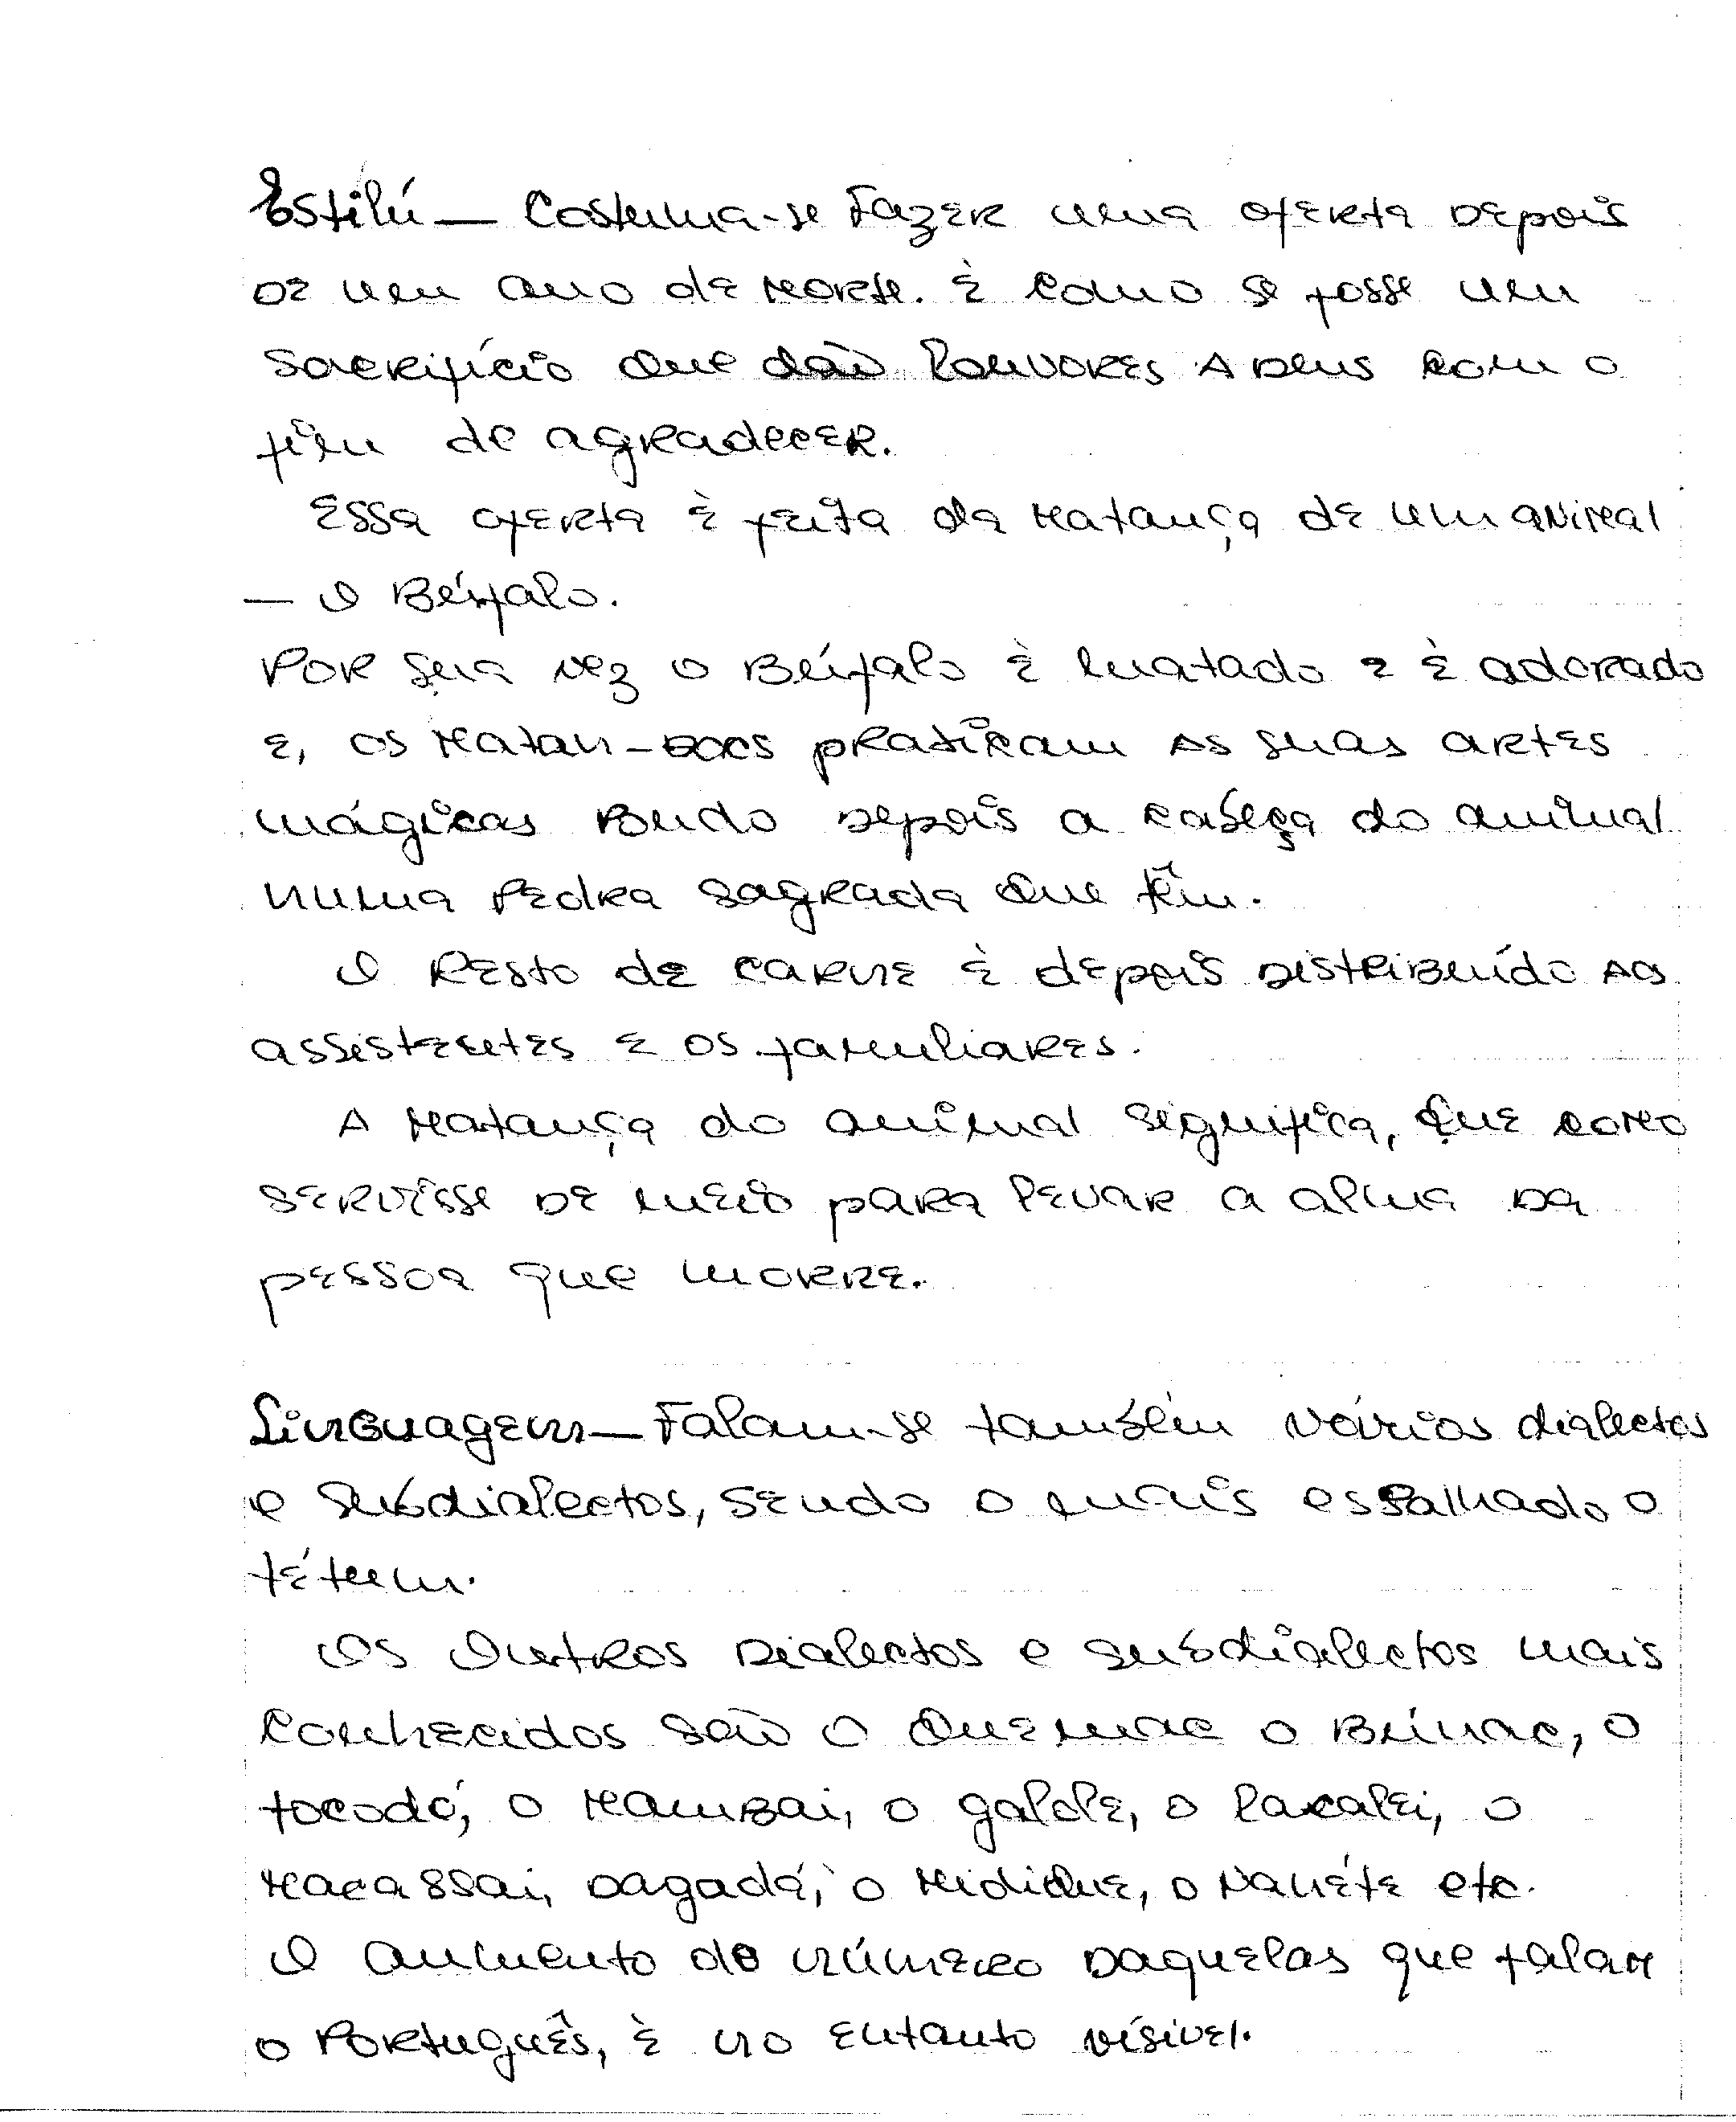 Estilú — Costuma-se Fazer uma oferta Depois
de um ano de morte. È como se fosse um
sacrifício que dão louvores a Deus com o
fim de agradecer.
Essa oferta è feita da matança de um animal
— O Búfalo.
Por sua vez o Búfalo è matado e è adorado
e, os matan-docs praticam as suas artes
mágicas pondo depois a cabeça do animal
numa pedra sagrada que têm.
O resto de carne è depois distribuído aos
assistentes e os familiares.
A matança do animal significa, que como
servisse de meio para levar a alma da
pessoa que morre.
Linguagem — Falam-se também vários dialectos
e subdialectos, sendo o mais espalhado o
tétum.
Os outros dialectos e subdialectos mais
conhecidos são o Quemac o Búnac, o
tocodé, o Mambai, o galole, o lacalei, o
Macassai, Dagadá, o Midique, o Nauéte etc.
O aumento do número daquelas que falam
o Português, è no entanto vísivel.